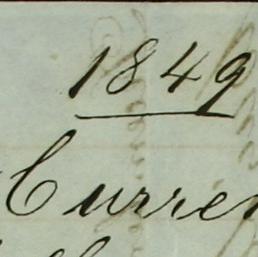 1849
Curren